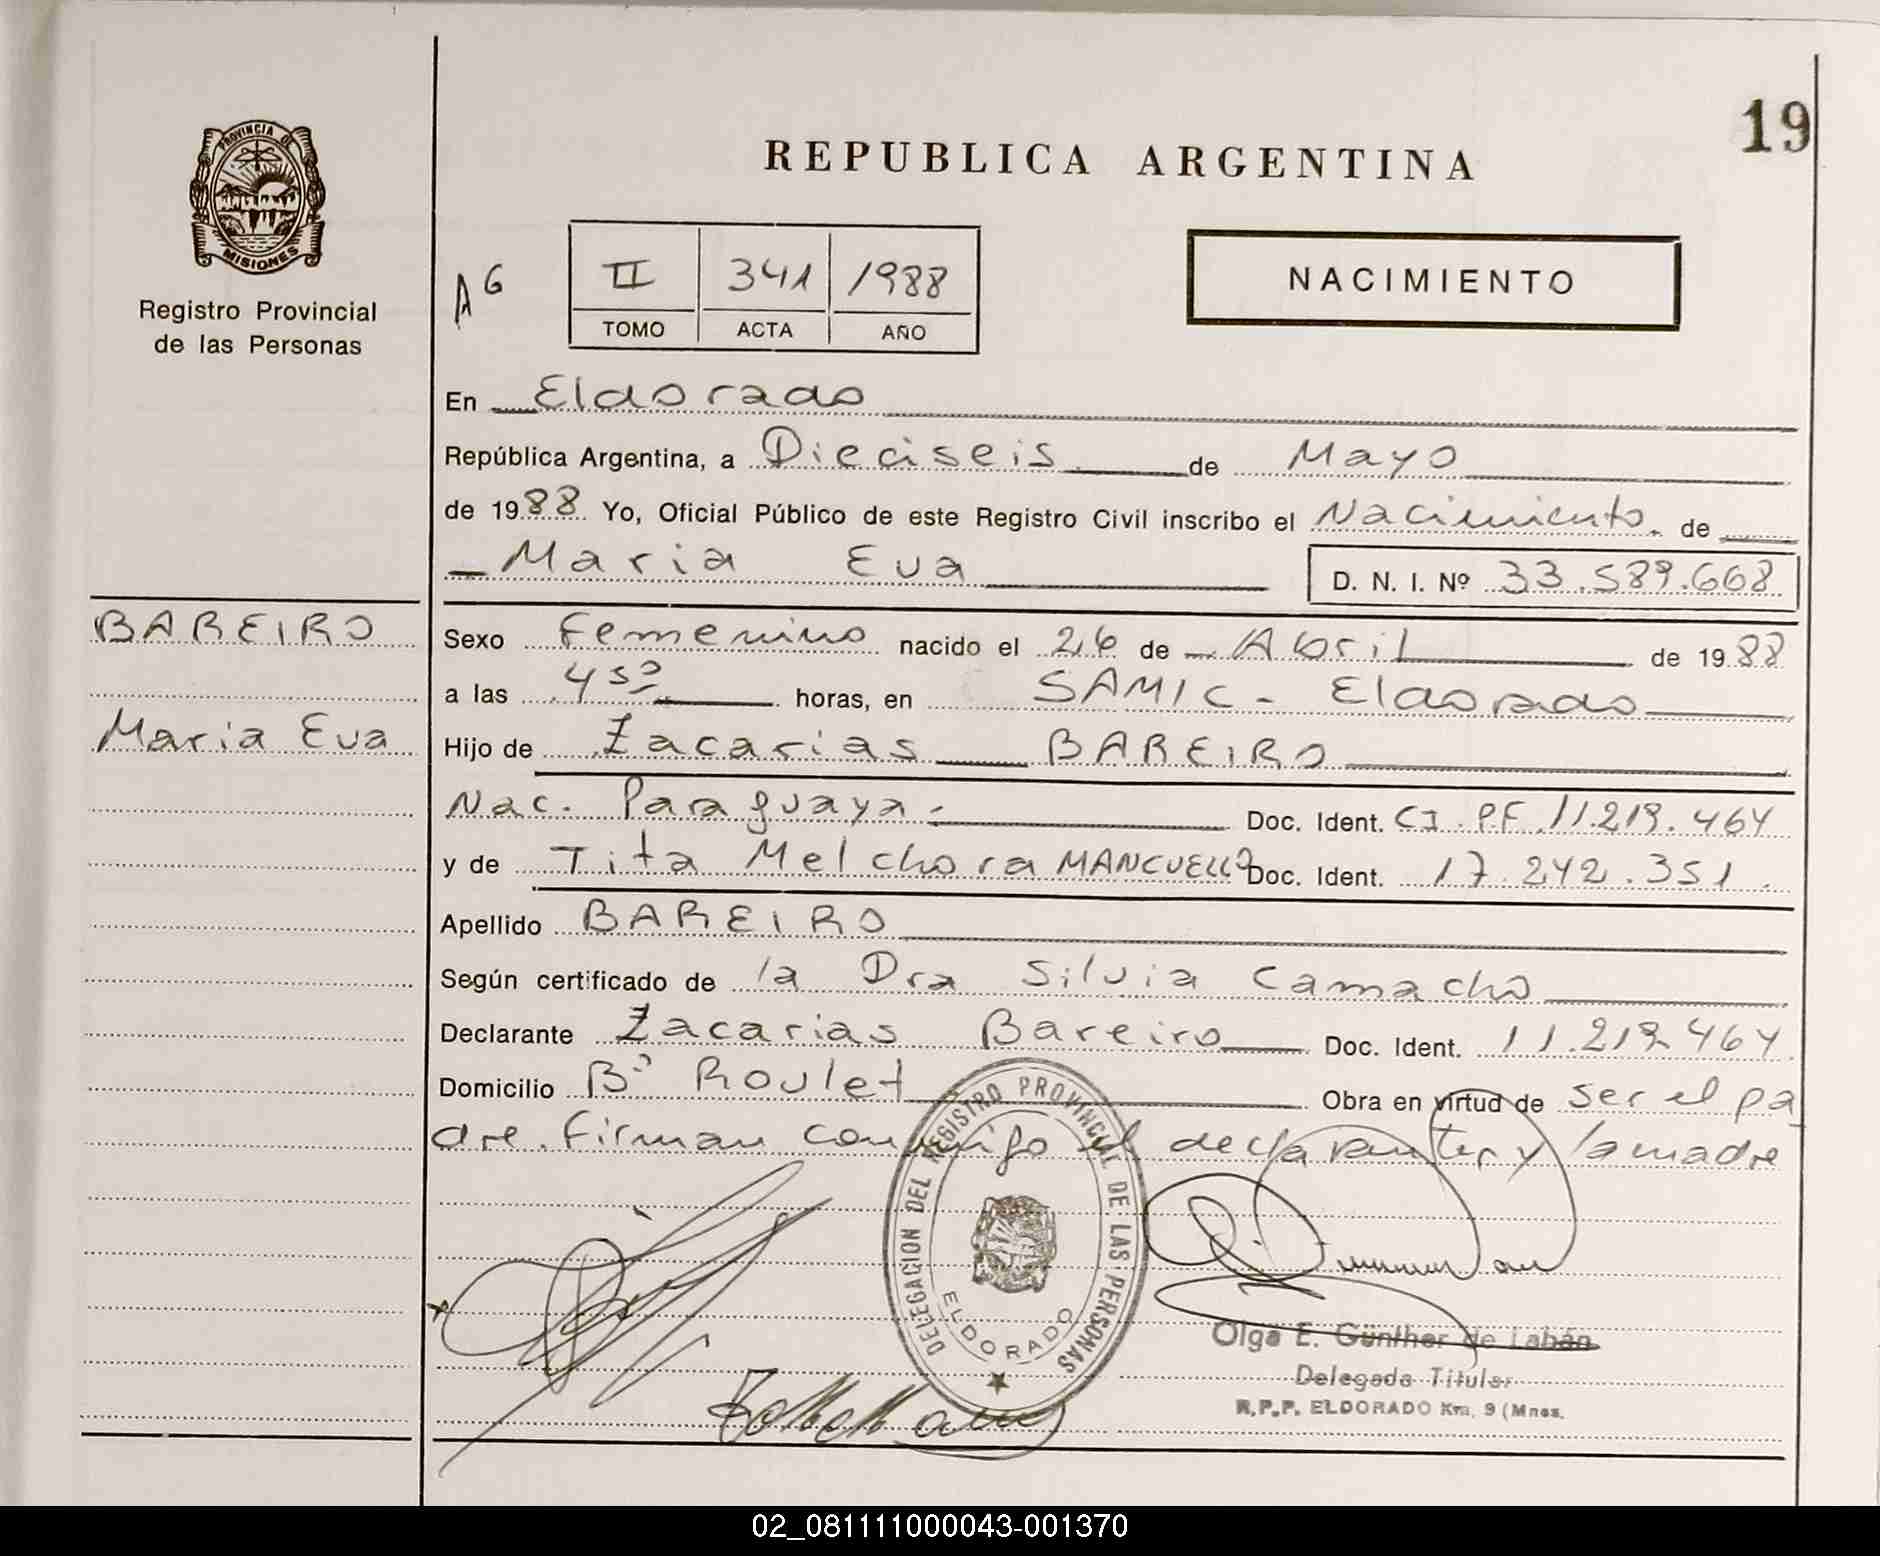 19
PROVINCIA DE
MISIONES
Registro Provincial
de las Personas
REPUBLICA ARGENTINA
A6
II 341 1988
TOMO ACTA AÑO
NACIMIENTO
En Eldorado
República Argentina, a Dieciseis de Mayo
de 1988 Yo, Oficial Público de este Registro Civil inscribo el Nacimiento de
Maria Eva D. N. I. Nº 33.589.668
BAREIRO
Maria Eva
Sexo Femenino nacido el 26 de Abril de 1988
a las 4 50 horas, en SAMIC - Eldorado
Hijo de Zacarias BAREIRO
Nac. Paraguaya.- Doc. Ident. CI. PF. 11.219.464
y de Tita Melchora MANCUELLO Doc. Ident. 17.242.351.
Apellido BAREIRO
Según certificado de la Dra Silvia Camacho
Declarante Zacarias Bareiro Doc. Ident. 11.219.464
Domicilio Bº Roulet Obra en virtud de ser el pa
dre. Firman conmigo el declarante y la madre
DELEGACION DEL REGISTRO PROVINCIAL DE LAS PERSONAS
ELDORADO
Olga E. Günther de Labán
Delegada Titular
R.P.P. ELDORADO Km. 9 (Mnes.
02_081111000043-001370